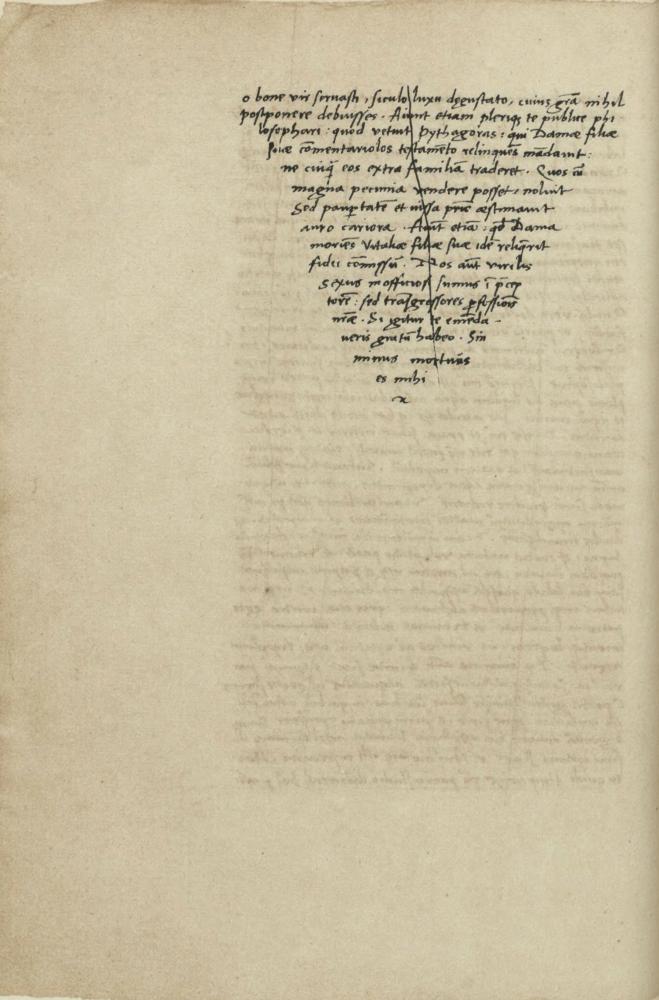 o bone vir servasti, siculo luxu degustato, cuius gr̃a nihil
postponere debuisses. Aiunt etiam pleriq; te publice phi
losophari: quod vetuit Pythagoras: qui Damæ filiæ
suæ cõmentariolos testamẽto relinquens mãdavit:
ne cuiq̃ eos extra familiã traderet. Quos cũ
magna pecunia vendere posset, noluit
Sed paup̱tatẽ et iussa p̃ris æstimavit
auro cariora. Aiunt etiã: qđ Dama
moriẽs Vitaliæ filiæ suæ idẽ reliq̃rit
fidei cõmissũ. Nos aũt virilis
sexus inofficiosi sumus ĩ p̃cep
torẽ: sed trãsgressores p̱fessiõis
nr̃æ. Si igitur te emẽda
veris gratũ habeo. Sin
minus mortuus
es mihi